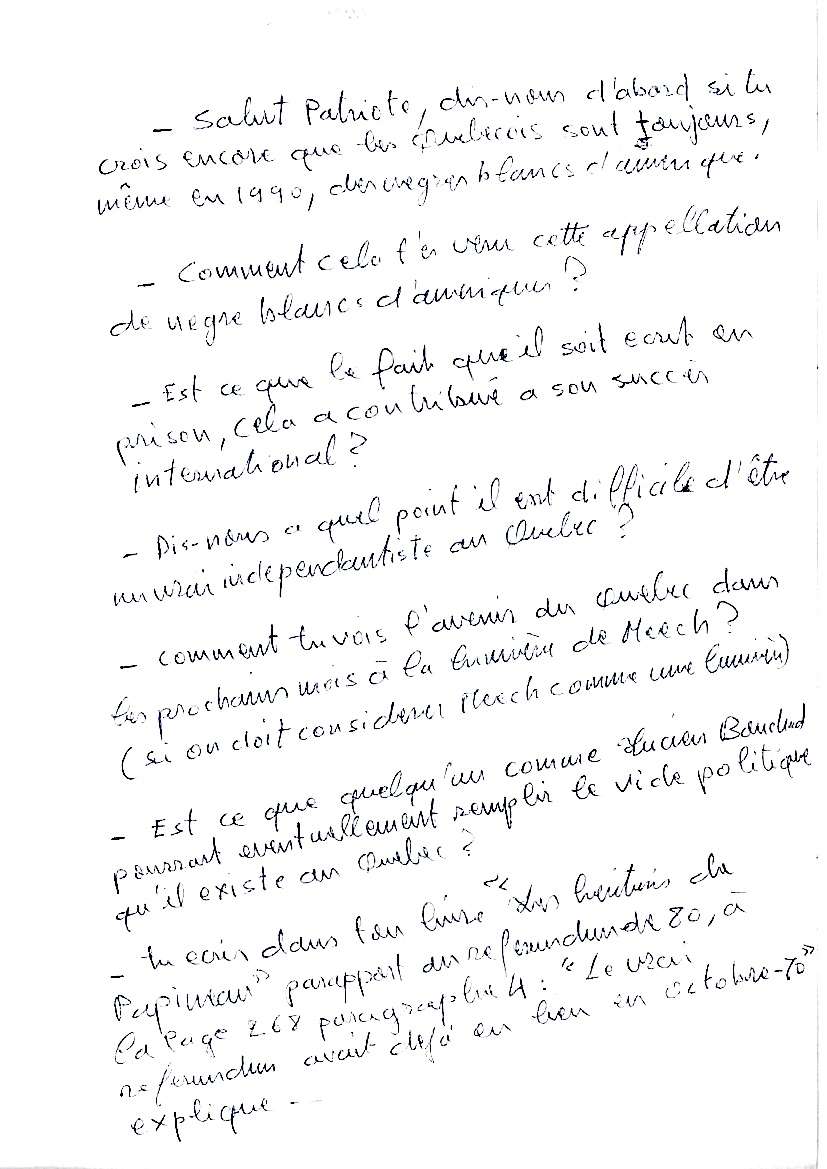 - Salut Patriote, dis-nous d'abord si tu
crois encore que les Québecois sont toujours,
même en 1990, des negres blancs d'amerique.
- Comment cela t'es venu cette appellation
de negre blancs d'amerique ?
- Est ce que le fait que il soit ecrit en
prison, cela a contribué a son succès
international ?
- Dis-nous a quel point il est difficile d'être
un vrai independantiste au Quebec ?
- Comment tu vois l'avenir du Quebec dans
les prochains mois à la lumière de Meech ?
(si on doit considerer Meech comme une lumière)
- Est ce que quelqu'un comme Lucien Bouchard
pourrait eventuellement remplir le vide politique
qu'il existe au Quebec ?
- tu ecris dans ton livre "Les heritiers de
Papineau" parapport au referundun de 80, à
la Page 268 paragraphe 4 : "Le vrai
referundun avait déjà eu lieu en octobre-70"
explique ---